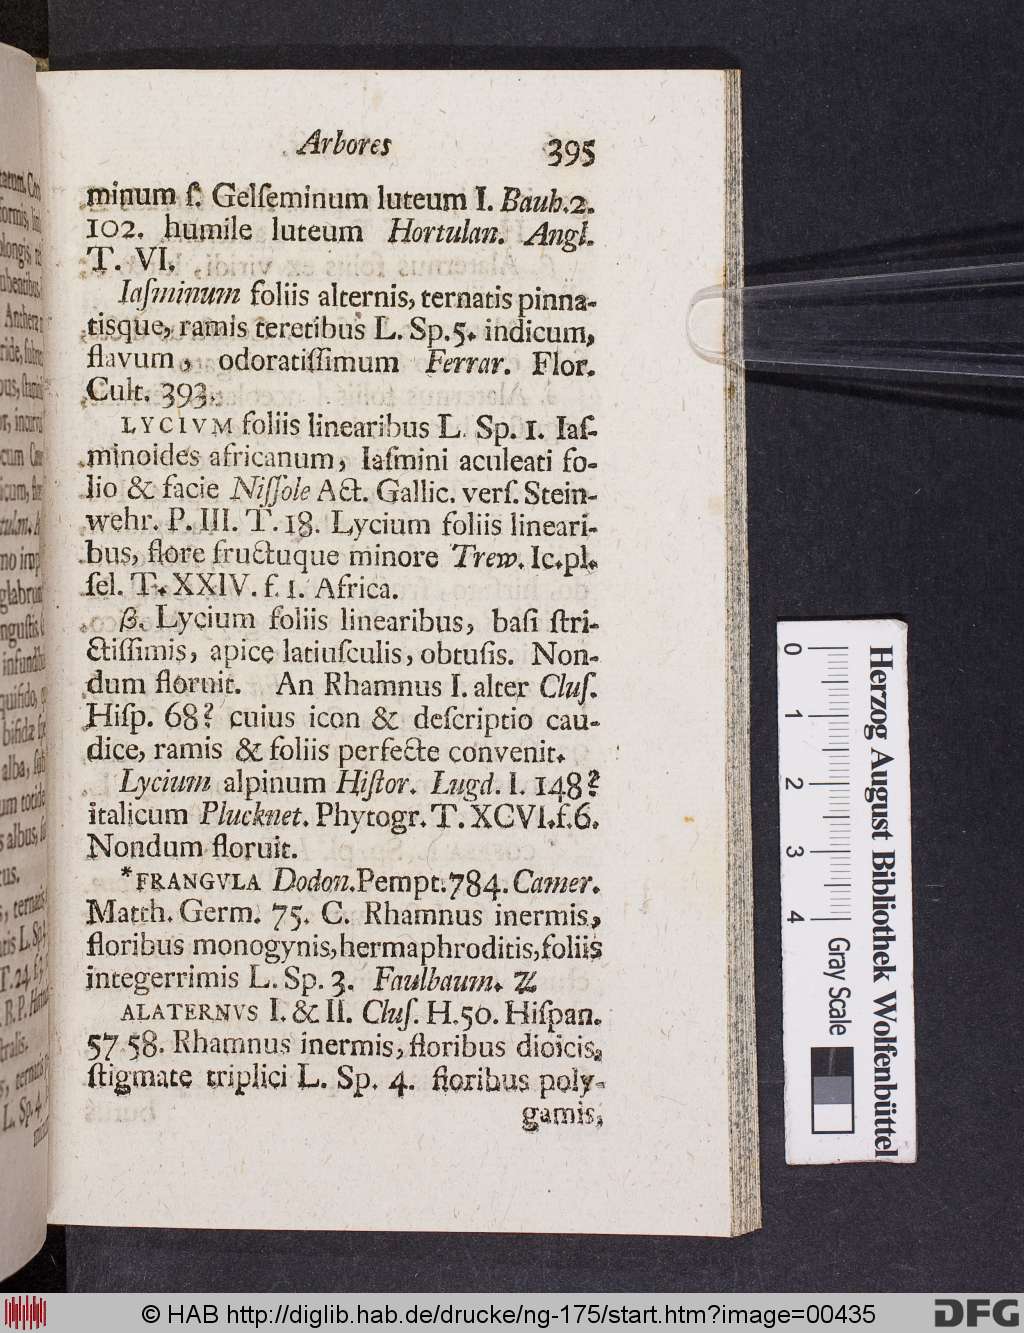 Arbores 395
minum ſ. Gelſeminum luteum I. Bauh.2.
102. humile luteum Hortulan. Angl.
T. VI.
Iaſminum foliis alternis, ternatis pinna-
tisque, ramis teretibus L. Sp.5. indicum,
flavum, odoratiſſimum Ferrar. Flor.
Cult. 393.
LYCIVM foliis linearibus L. Sp. 1. Iaſ-
minoides africanum, Iaſmini aculeati fo-
lio & facie Niſſole Act. Gallic. verſ. Stein-
wehr. P. III. T. 18. Lycium foliis lineari-
bus, flore fructuque minore Trew. Ic.pl.
ſel. T. XXIV. f. 1. Africa.
β. Lycium foliis linearibus, baſi ſtri-
ctiſſimis, apice latiuſculis, obtuſis. Non-
dum floruit. An Rhamnus I. alter Cluſ.
Hiſp. 68? cuius icon & deſcriptio cau-
dice, ramis & foliis perfecte convenit.
Lycium alpinum Hiſtor. Lugd. l. 148?
italicum Plucknet. Phytogr. T. XCVI.f.6.
Nondum floruit.
*FRANGVLA Dodon.Pempt.784. Camer.
Matth. Germ. 75. C. Rhamnus inermis,
floribus monogynis, hermaphroditis, foliis
integerrimis L. Sp. 3. Faulbaum. ♃
ALATERNVS I. & II. Cluſ. H.50. Hiſpan.
57 58. Rhamnus inermis, floribus dioicis,
ſtigmate triplici L. Sp. 4. floribus poly-
gamis,
0 1 2 3 4
Herzog August Bibliothek Wolfenbüttel
Gray Scale
© HAB http://diglib.hab.de/drucke/ng-175/start.htm?image=00435
DFG